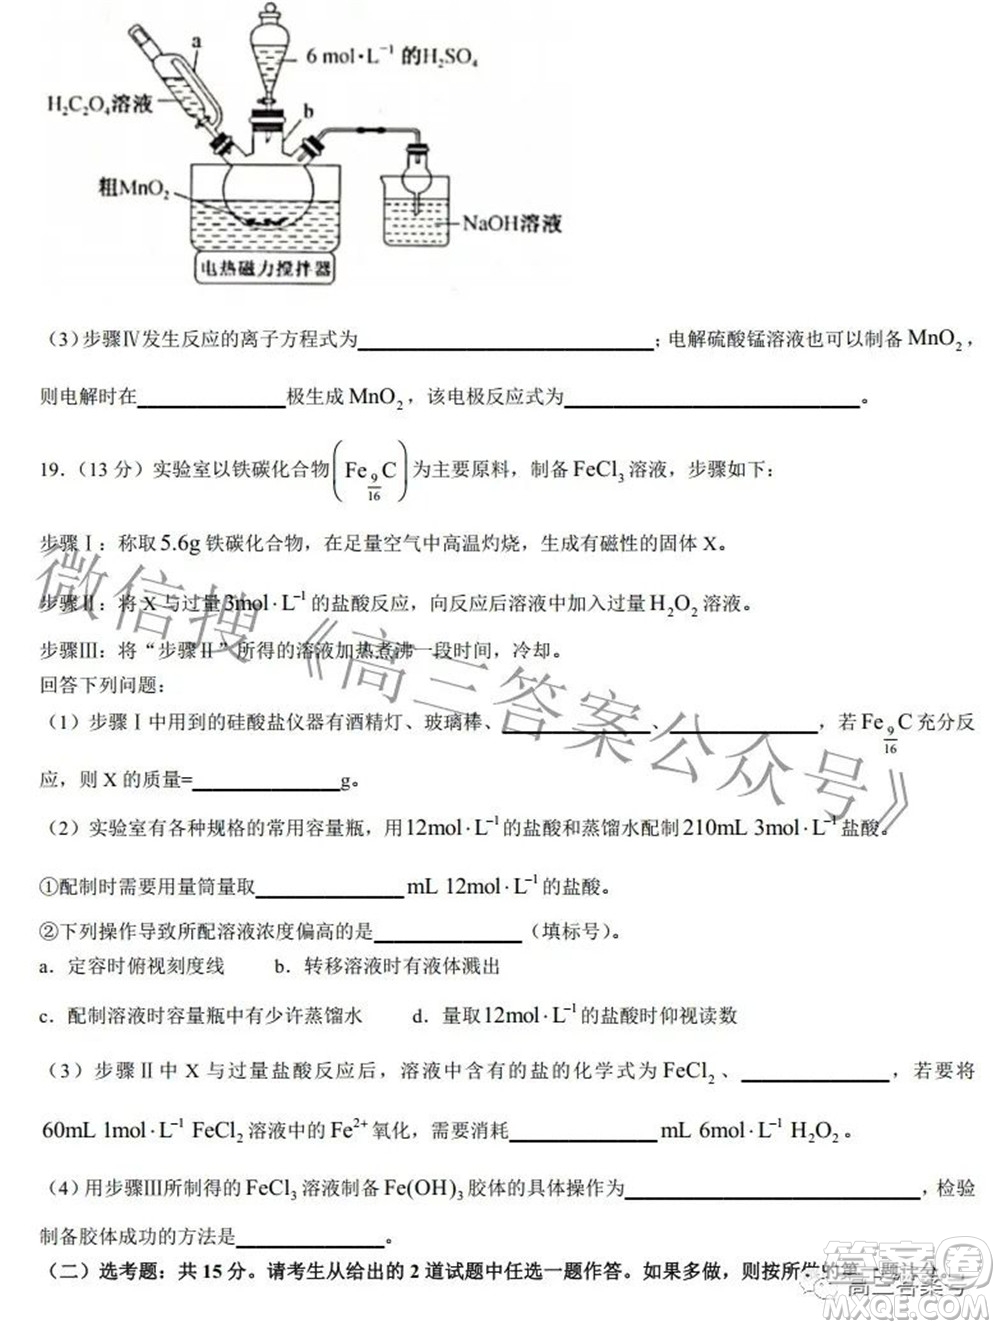 a
6 mol·L⁻¹ 的H₂SO₄
H₂C₂O₄溶液
b
粗MnO₂
NaOH溶液
电热磁力搅拌器
（3）步骤Ⅳ发生反应的离子方程式为______________；电解硫酸锰溶液也可以制备MnO₂，
则电解时在______________极生成MnO₂，该电极反应式为______________。
19．（13 分）实验室以铁碳化合物(Fe_{9/16}C)为主要原料，制备FeCl₃溶液，步骤如下：
步骤Ⅰ：称取5.6g铁碳化合物，在足量空气中高温灼烧，生成有磁性的固体 X。
步骤Ⅱ：将 X 与过量3mol·L⁻¹的盐酸反应，向反应后溶液中加入过量H₂O₂溶液。
步骤Ⅲ：将“步骤Ⅱ”所得的溶液加热煮沸一段时间，冷却。
回答下列问题：
（1）步骤Ⅰ中用到的硅酸盐仪器有酒精灯、玻璃棒、______________、______________，若Fe_{9/16}C充分反
应，则 X 的质量=______________g。
（2）实验室有各种规格的常用容量瓶，用12mol·L⁻¹的盐酸和蒸馏水配制210mL 3mol·L⁻¹盐酸。
①配制时需要用量筒量取______________mL 12mol·L⁻¹的盐酸。
②下列操作导致所配溶液浓度偏高的是______________（填标号）。
a．定容时俯视刻度线 b．转移溶液时有液体溅出
c．配制溶液时容量瓶中有少许蒸馏水 d．量取12mol·L⁻¹的盐酸时仰视读数
（3）步骤Ⅱ中 X 与过量盐酸反应后，溶液中含有的盐的化学式为FeCl₂、______________，若要将
60mL 1mol·L⁻¹ FeCl₂溶液中的Fe²⁺氧化，需要消耗______________mL 6mol·L⁻¹ H₂O₂。
（4）用步骤Ⅲ所制得的FeCl₃溶液制备Fe(OH)₃胶体的具体操作为______________，检验
制备胶体成功的方法是______________。
（二）选考题：共 15 分。请考生从给出的 2 道试题中任选一题作答。如果多做，则按所做的第一题计分。
微信搜《高三答案公众号》
答案圈
高三答案号
MXQE.COM